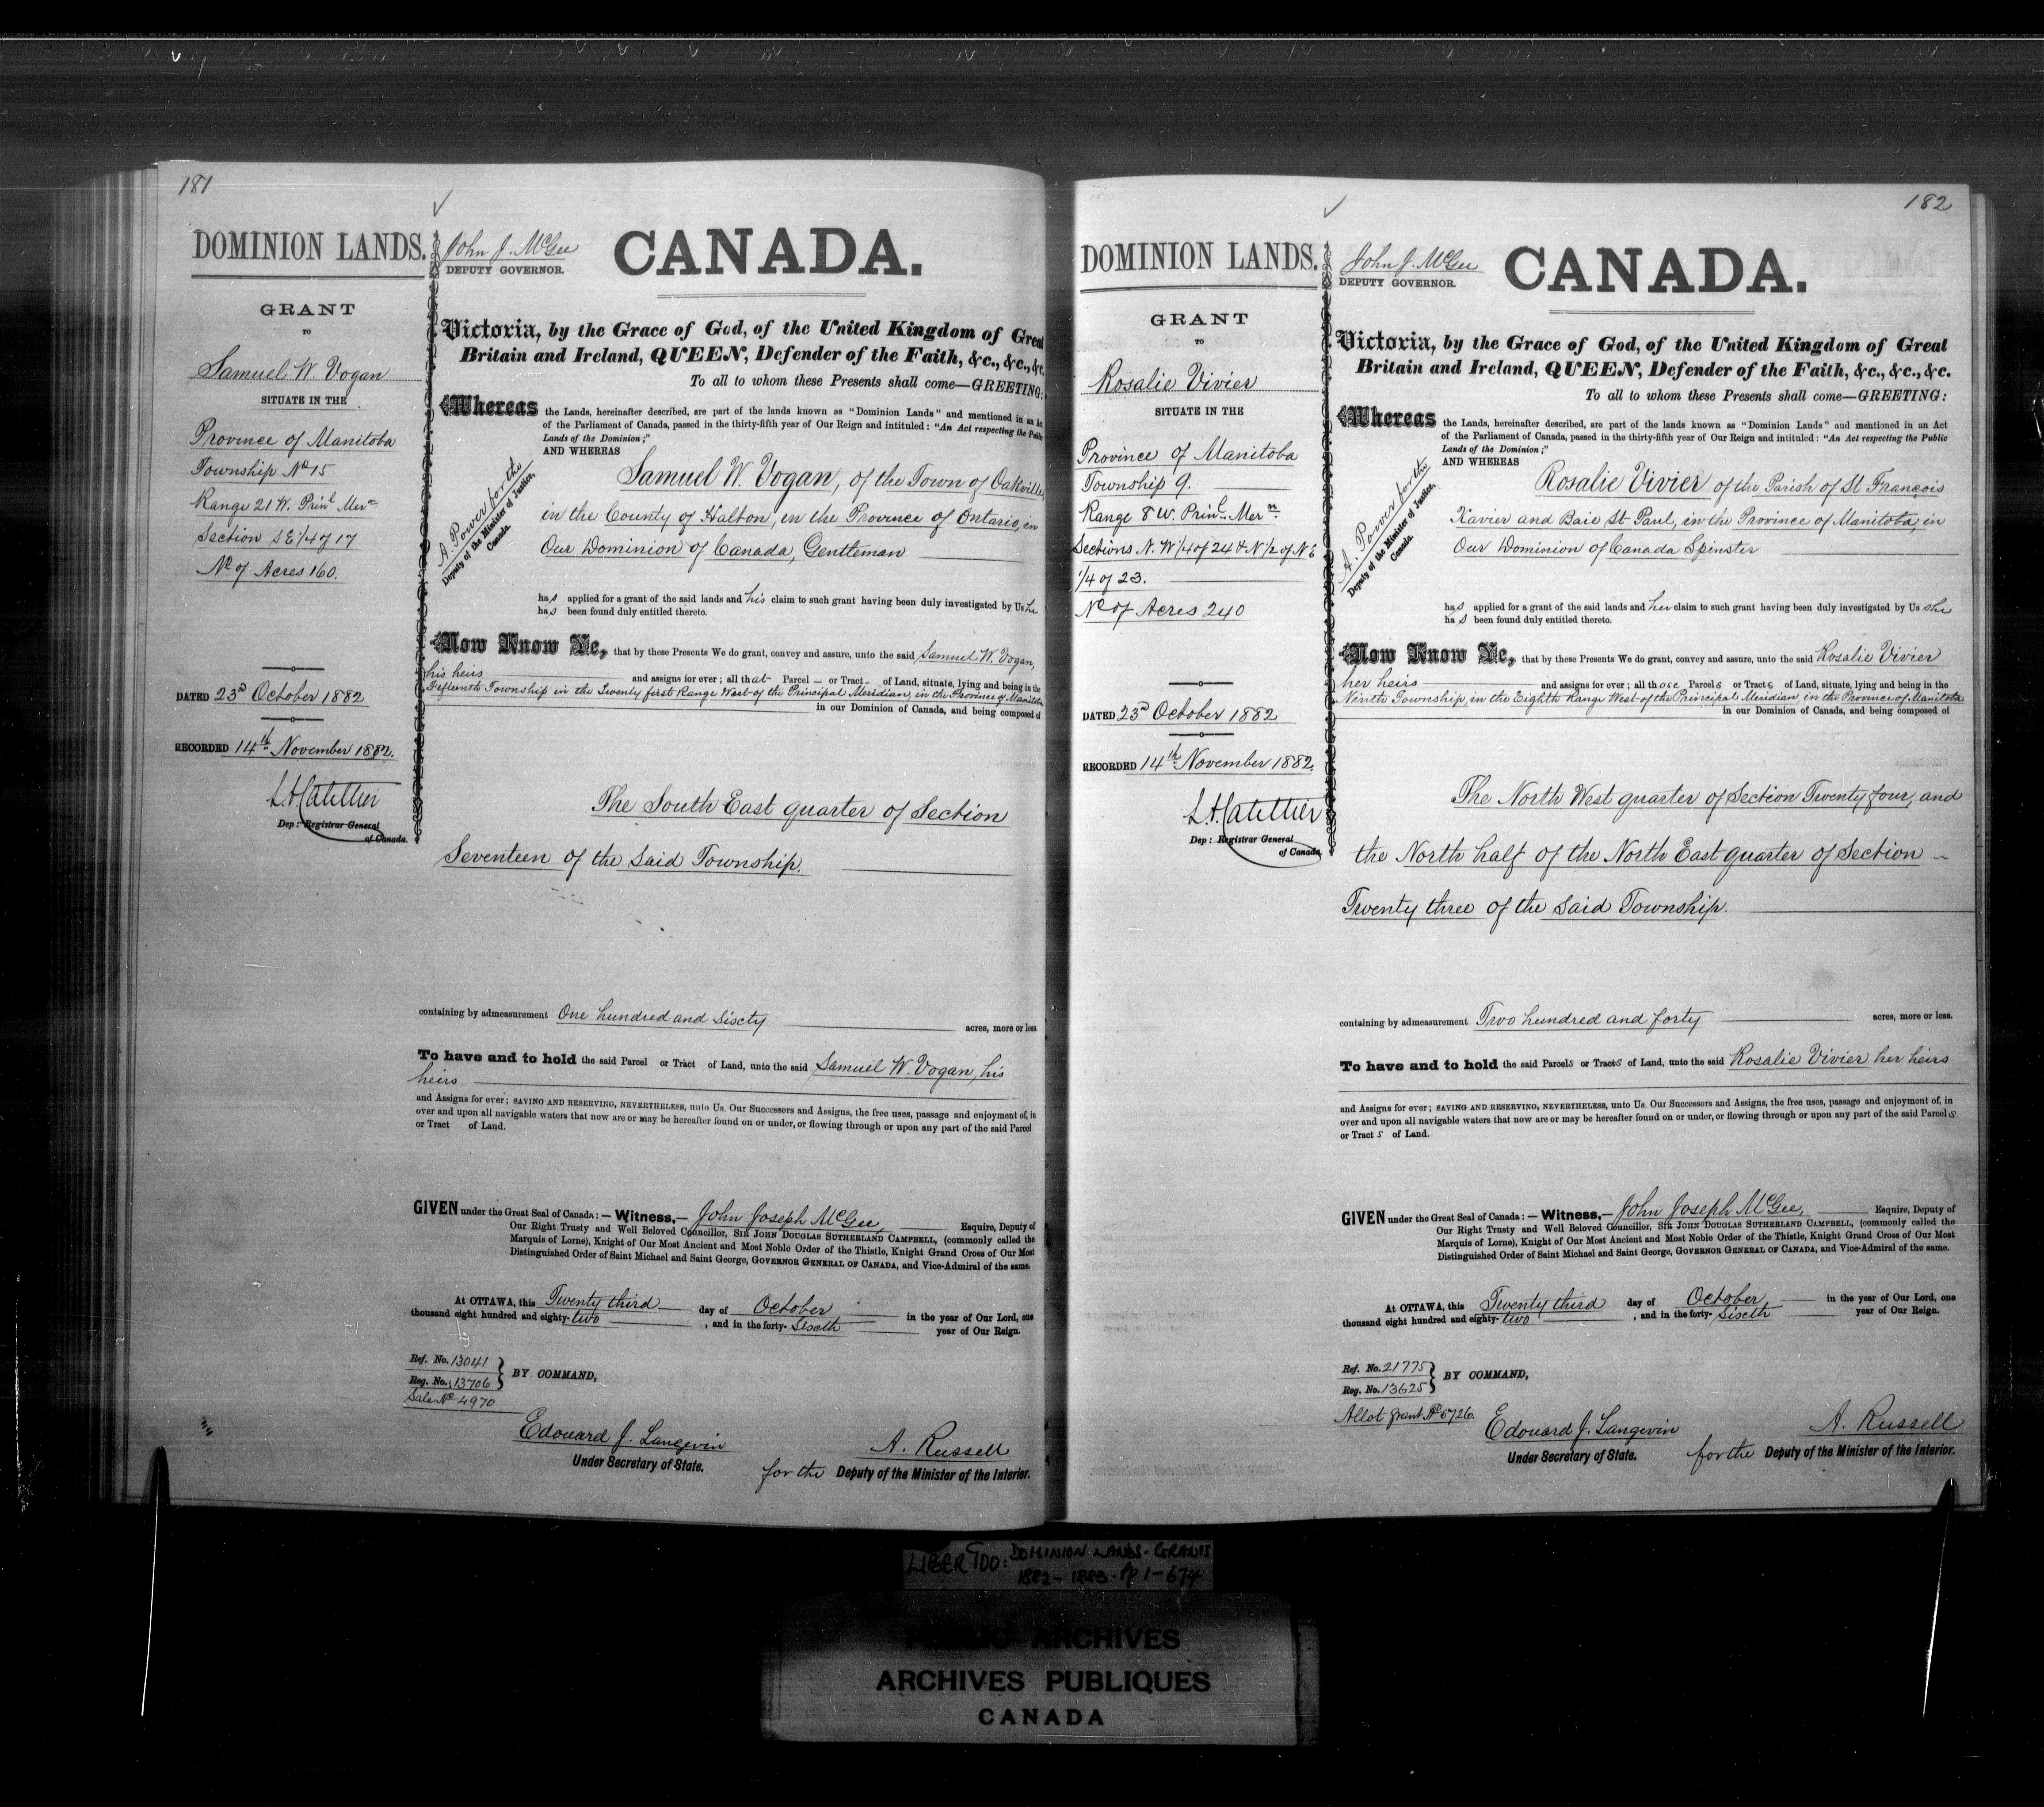 181
DOMINION LANDS.
GRANT
TO
Samuel W. Vogan
SITUATE IN THE
Province of Manitoba
Township No 15
Range 21 W. Prinl Mern
Section S E 1/4 of 17
No of Acres 160.
DATED 23d October 1882
RECORDED 14th November 1882.
Dep: Registrar General
of Canada.
John J. McGee
DEPUTY GOVERNOR.
CANADA.
Victoria, by the Grace of God, of the United Kingdom of Great
Britain and Ireland, QUEEN, Defender of the Faith, &c., &c., &c.
To all to whom these Presents shall come—GREETING:
Whereas the Lands, hereinafter described, are part of the lands known as "Dominion Lands" and mentioned in an Act
of the Parliament of Canada, passed in the thirty-fifth year of Our Reign and intituled: "An Act respecting the Public
Lands of the Dominion;"
AND WHEREAS
A. Power for the
Deputy of the Minister of Justice,
Canada.
Samuel W. Vogan, of the Town of Oakville,
in the County of Halton, in the Province of Ontario, in
Our Dominion of Canada, Gentleman
has applied for a grant of the said lands and his claim to such grant having been duly investigated by Us he
has been found duly entitled thereto.
Now Know Ye, that by these Presents We do grant, convey and assure, unto the said Samuel W. Vogan,
his heirs and assigns for ever; all that Parcel — or Tract - of Land, situate, lying and being in the
Fifteenth Township in the Twenty first Range West of the Principal Meridian, in the Province of Manitoba
in our Dominion of Canada, and being composed of
The South East quarter of Section
Seventeen of the said Township.
containing by admeasurement One hundred and Sixty acres, more or less.
To have and to hold the said Parcel or Tract of Land, unto the said Samuel W. Vogan, his
heirs
and Assigns for ever; SAVING AND RESERVING, NEVERTHELESS, unto Us. Our Successors and Assigns, the free uses, passage and enjoyment of, in
over and upon all navigable waters that now are or may be hereafter found on or under, or flowing through or upon any part of the said Parcel
or Tract of Land.
GIVEN under the Great Seal of Canada: — Witness,— John Joseph McGee, Esquire, Deputy of
Our Right Trusty and Well Beloved Councillor, SIR JOHN DOUGLAS SUTHERLAND CAMPBELL, (commonly called the
Marquis of Lorne), Knight of Our Most Ancient and Most Noble Order of the Thistle, Knight Grand Cross of Our Most
Distinguished Order of Saint Michael and Saint George, GOVERNOR GENERAL OF CANADA, and Vice-Admiral of the same.
At OTTAWA, this Twenty third day of October in the year of Our Lord, one
thousand eight hundred and eighty-two, and in the forty-Sixth year of Our Reign.
Ref. No. 13041
Reg. No. 13706
BY COMMAND,
Sale No 4970
Edouard J. Langevin
Under Secretary of State.
A. Russell
for the Deputy of the Minister of the Interior.
182
DOMINION LANDS.
GRANT
TO
Rosalie Vivier
SITUATE IN THE
Province of Manitoba
Township 9.
Range 8 W. Prinl Mern.
Sections N. W 1/4 of 24 & N 1/2 of N E
1/4 of 23.
No of Acres 240
DATED 23d October 1882
RECORDED 14th November 1882.
Dep: Registrar General
of Canada.
John J. McGee
DEPUTY GOVERNOR.
CANADA.
Victoria, by the Grace of God, of the United Kingdom of Great
Britain and Ireland, QUEEN, Defender of the Faith, &c., &c., &c.
To all to whom these Presents shall come—GREETING:
Whereas the Lands, hereinafter described, are part of the lands known as "Dominion Lands" and mentioned in an Act
of the Parliament of Canada, passed in the thirty-fifth year of Our Reign and intituled: "An Act respecting the Public
Lands of the Dominion;"
AND WHEREAS
A. Power for the
Deputy of the Minister of Justice,
Canada.
Rosalie Vivier of the Parish of St François
Xavier and Baie St Paul, in the Province of Manitoba, in
Our Dominion of Canada Spinster
has applied for a grant of the said lands and her claim to such grant having been duly investigated by Us she
has been found duly entitled thereto.
Now Know Ye, that by these Presents We do grant, convey and assure, unto the said Rosalie Vivier
her heirs and assigns for ever; all those Parcels or Tracts of Land, situate, lying and being in the
Ninth Township, in the Eighth Range West of the Principal Meridian, in the Province of Manitoba
in our Dominion of Canada, and being composed of
The North West quarter of Section Twenty four, and
the North half of the North East quarter of Section
Twenty three of the said Township.
containing by admeasurement Two hundred and forty acres, more or less.
To have and to hold the said Parcels or Tracts of Land, unto the said Rosalie Vivier her heirs
and Assigns for ever; SAVING AND RESERVING, NEVERTHELESS, unto Us. Our Successors and Assigns, the free uses, passage and enjoyment of, in
over and upon all navigable waters that now are or may be hereafter found on or under, or flowing through or upon any part of the said Parcels
or Tracts of Land.
GIVEN under the Great Seal of Canada: — Witness,— John Joseph McGee, Esquire, Deputy of
Our Right Trusty and Well Beloved Councillor, SIR JOHN DOUGLAS SUTHERLAND CAMPBELL, (commonly called the
Marquis of Lorne), Knight of Our Most Ancient and Most Noble Order of the Thistle, Knight Grand Cross of Our Most
Distinguished Order of Saint Michael and Saint George, GOVERNOR GENERAL OF CANADA, and Vice-Admiral of the same.
At OTTAWA, this Twenty third day of October in the year of Our Lord, one
thousand eight hundred and eighty-two, and in the forty-Sixth year of Our Reign.
Ref. No. 21775
Reg. No. 13625
BY COMMAND,
Allot Grant No 5726.
Edouard J. Langevin
Under Secretary of State.
A. Russell
for the Deputy of the Minister of the Interior.
LIBER 900: DOMINION LANDS-GRANTS
1882-1883. Pp 1-674
PUBLIC ARCHIVES
ARCHIVES PUBLIQUES
CANADA